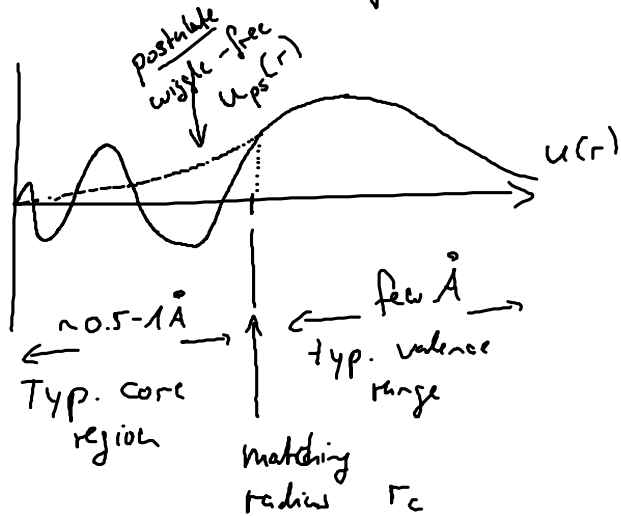 postulate
wiggle-free
u_ps(r)
u(r)
~0.5-1Å
Typ. core
region
few Å
typ. valence
range
matching
radius r_c